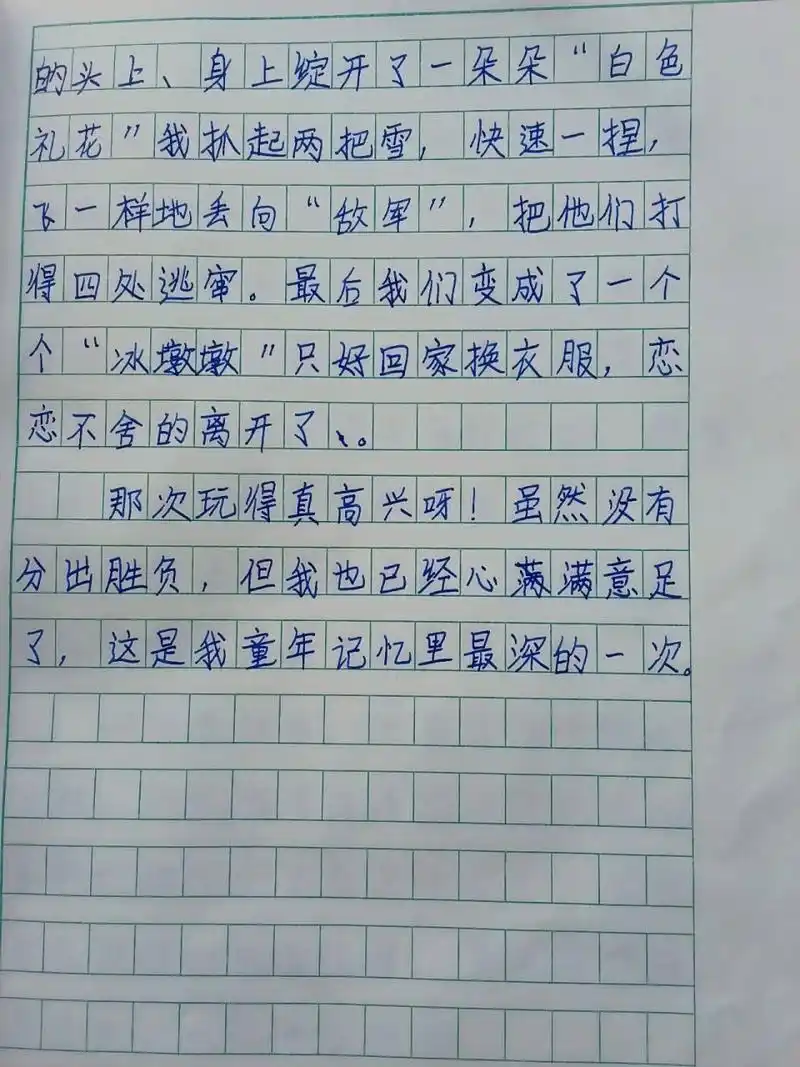 的头上、身上绽开了一朵朵“白色
礼花”我抓起两把雪，快速一捏，
飞一样地丢向“敌军”，把他们打
得四处逃窜。最后我们变成了一个
个“冰墩墩”只好回家换衣服，恋
恋不舍的离开了、。
那次玩得真高兴呀！虽然没有
分出胜负，但我也已经心满满意足
了，这是我童年记忆里最深的一次。